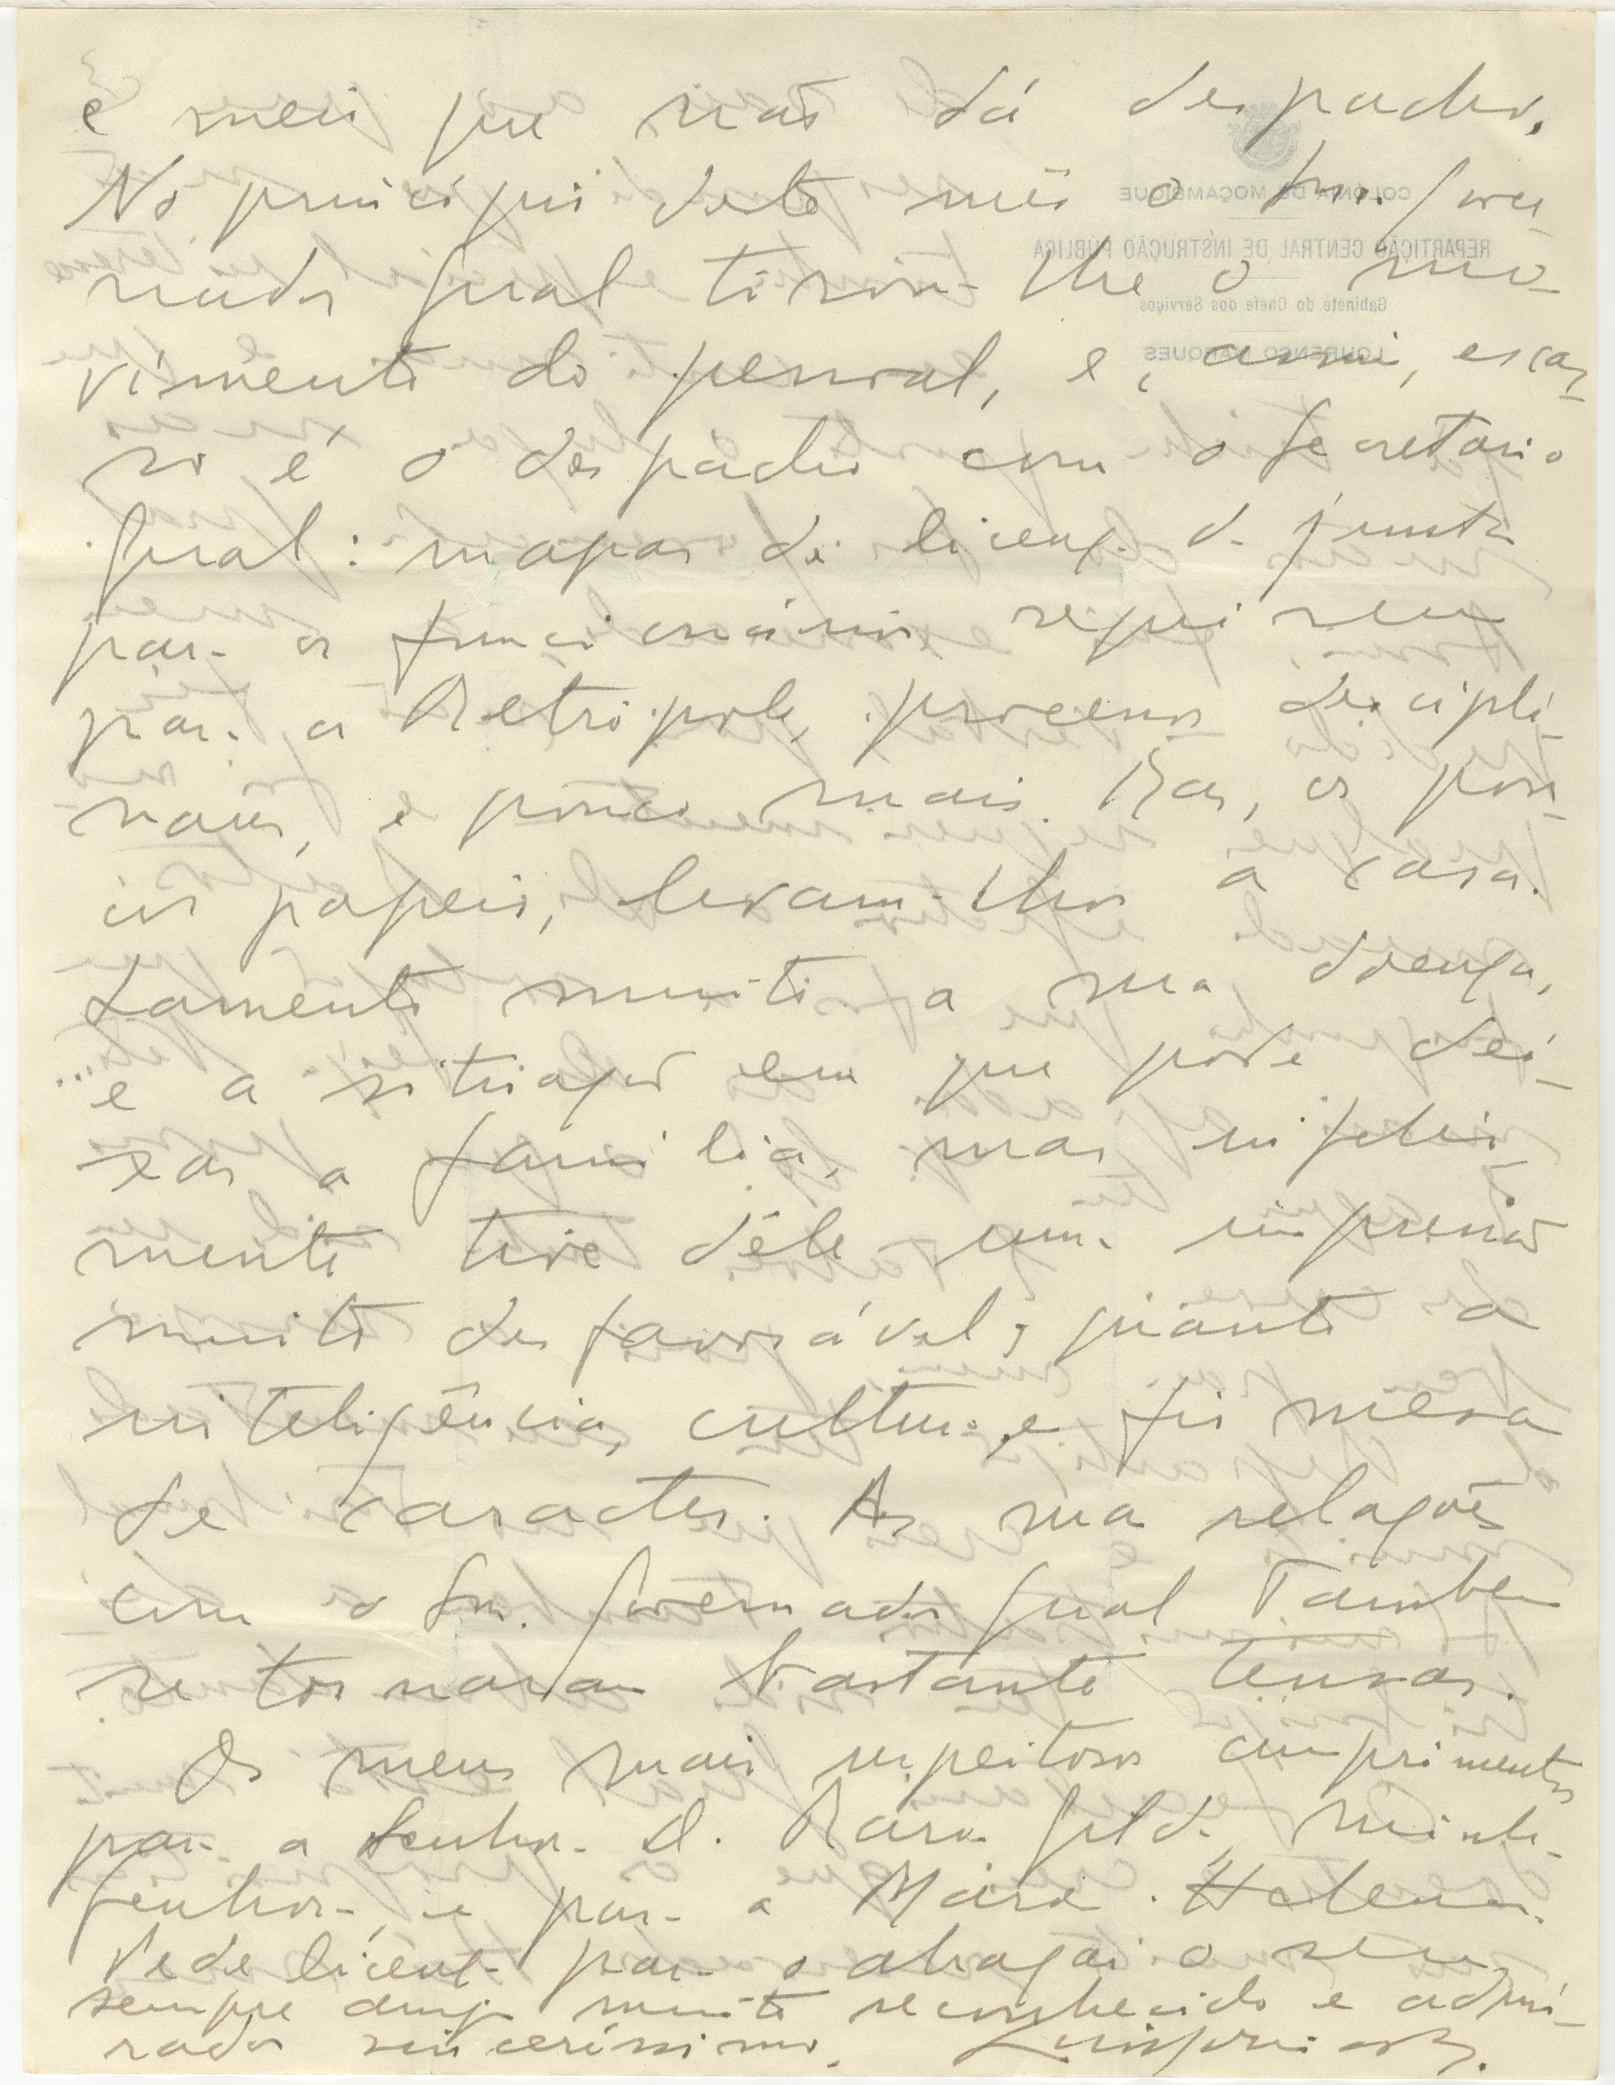 e meio que não dá despacho.
No princípio deste mês o Snr. Gover
nador Geral tirou-lhe o mo-
vimento do pessoal, e, assim, escas-
so é o despacho com o Secretario
Geral: mapas de licença da junta
para os funcionários seguirem
para a Metrópole, processos discipli-
nares, e pouco mais. Mas, os pou-
cos papeis, levam-lhos a casa.
Lamento muito a sua doença,
e a situação em que pode dei-
xar a familia, mas infeliz-
mente tive dêle uma impressão
muito desfavorável, quanto a
inteligência, cultura e firmêsa
de caracter. As suas relações
com o Snr. Governador Geral tambem
se tornaram bastante tensas.
Os meus mais respeitosos cumprimentos
para a Senhora D. Minha
Senhora, e para a Maria Helena.
Pede licença para o abraçar o seu
sempre amigo muito reconhecido e admi-
rador sincerissimo,
COLONIA DE MOÇAMBIQUE
REPARTIÇÃO CENTRAL DE INSTRUÇÃO PÚBLICA
Gabinete do Chefe dos Serviços
LOURENÇO MARQUES